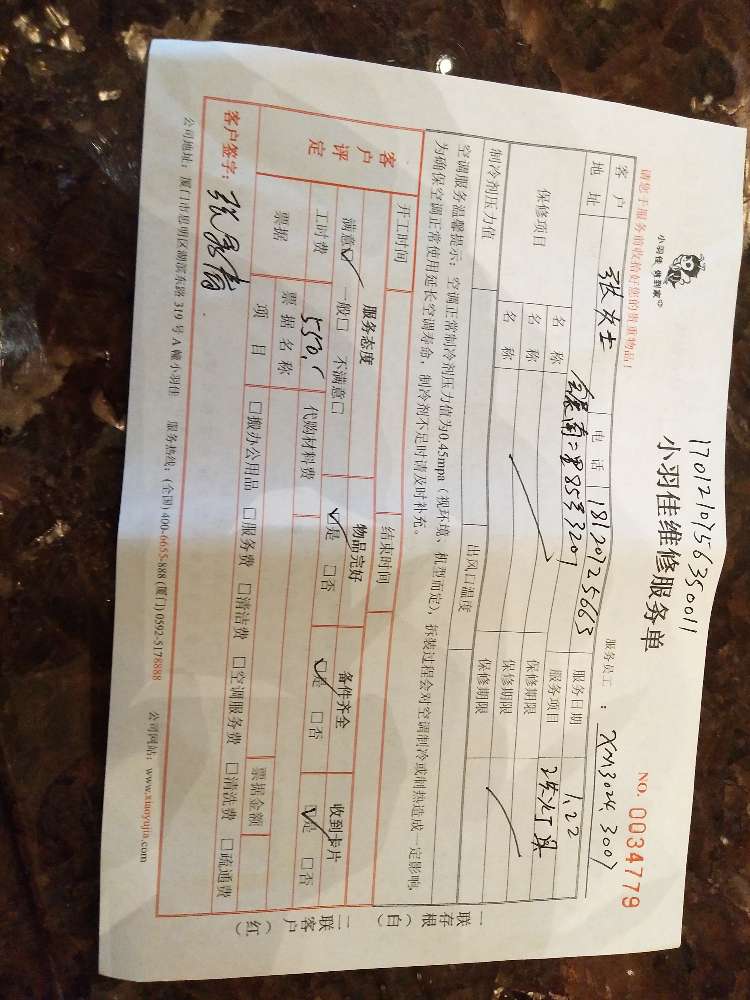 170121075635 0011
小羽佳 俱到家
小羽佳维修服务单
NO. 0034779
请您于服务前收拾好您的贵重物品！
服务员工：XM3024, 3007
客户 张女士 电话 18120725663 服务日期 1.22
地址 二里85号3201 服务项目
保修项目 名称 保修期限
名称 保修期限
名称 保修期限
制冷剂压力值 出风口温度
空调服务温馨提示：空调正常制冷剂压力值为0.45mpa（视环境、机型而定），拆装过程会对空调制冷或制热造成一定影响，
为确保空调正常使用延长空调寿命，制冷剂不足时请及时补充。
开工时间 结束时间
客户评定 服务态度 物品完好 备件齐全 收到卡片
满意☑ 一般□ 不满意□ ☑是 □否 ☑是 □否 ☑是 □否
工时费 550. 代购材料费
票据 票据名称 票据金额
项目 □搬办公用品 □服务费 □清洁费 □空调服务费 □清洗费 □疏通费
客户签字：张
公司地址：厦门市思明区湖滨东路 319 号 A 幢小羽佳 服务热线：(全国) 400-6655-888 (厦门) 0592-5178888 公司网站：www.xiaoyujia.com
一联存根（白）
二联客户（红）